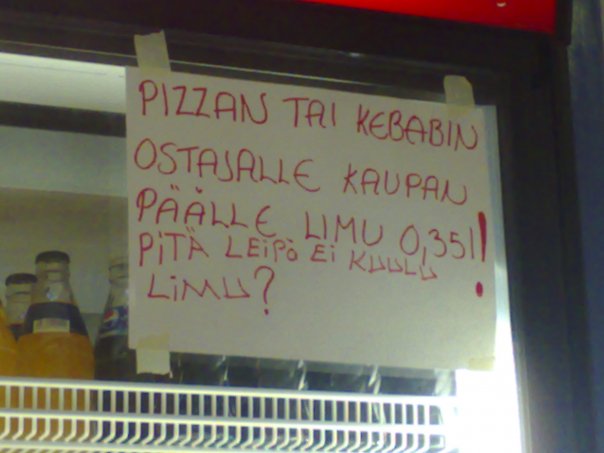 PIZZAN TAI KEBABIN
OSTAJALLE KAUPAN
PÄÄLLE LIMU 0,35l!
PiTÄ LEiPÄ Ei KUULU
LiMU?